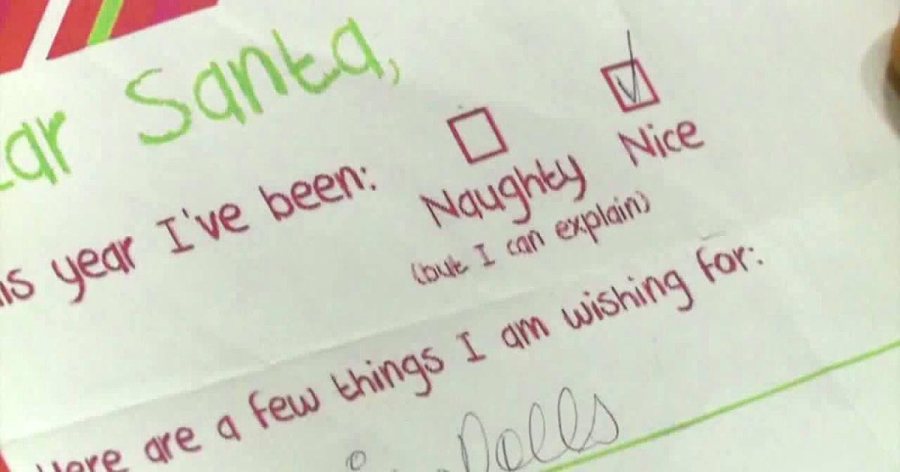 ear Santa,
is year I've been:
Naughty
Nice
(but I can explain)
Here are a few things I am wishing for:
Dolls